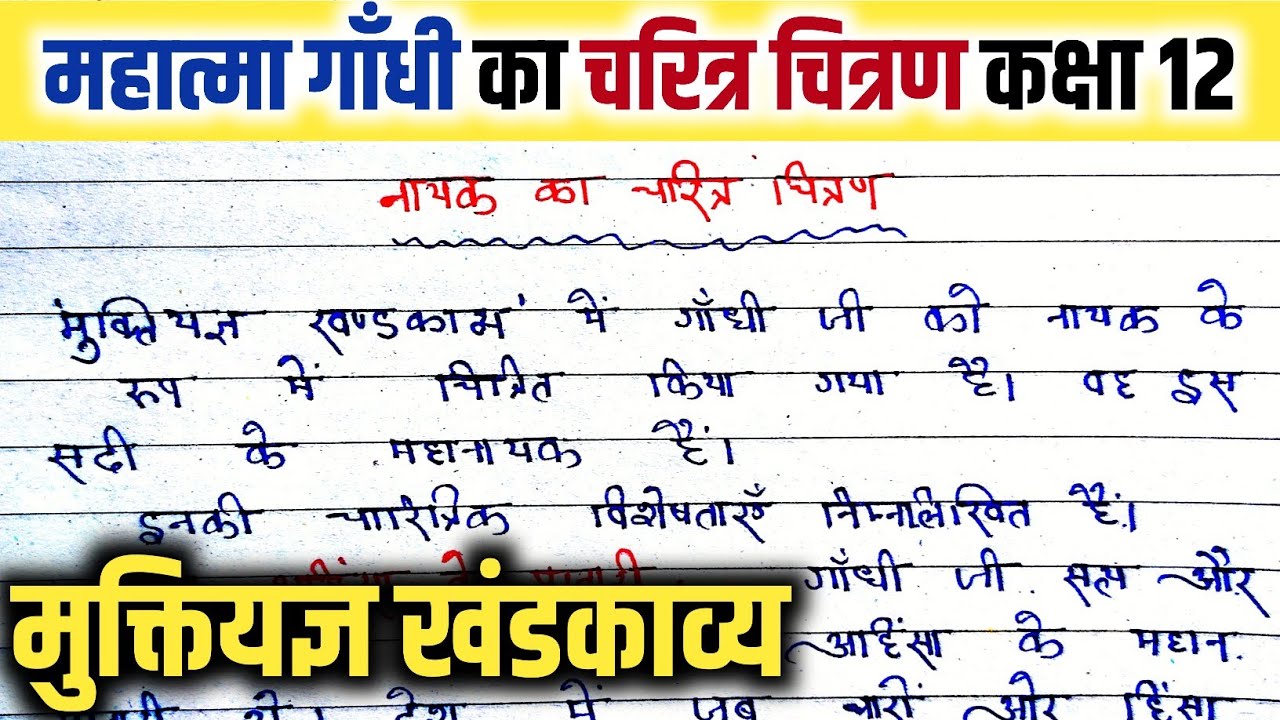 महात्मा गाँधी का चरित्र चित्रण कक्षा 12
नायक का चरित्र चित्रण
मुक्तियज्ञ खण्डकाव्य में गाँधी जी को नायक के
रूप में चित्रित किया गया है। वह इस
सदी के महानायक हैं।
इनकी चारित्रिक विशेषताएँ निम्नलिखित हैं।
गाँधी जी सत्य और
मुक्तियज्ञ खंडकाव्य
अहिंसा के महान
देश में जब चारों ओर हिंसा